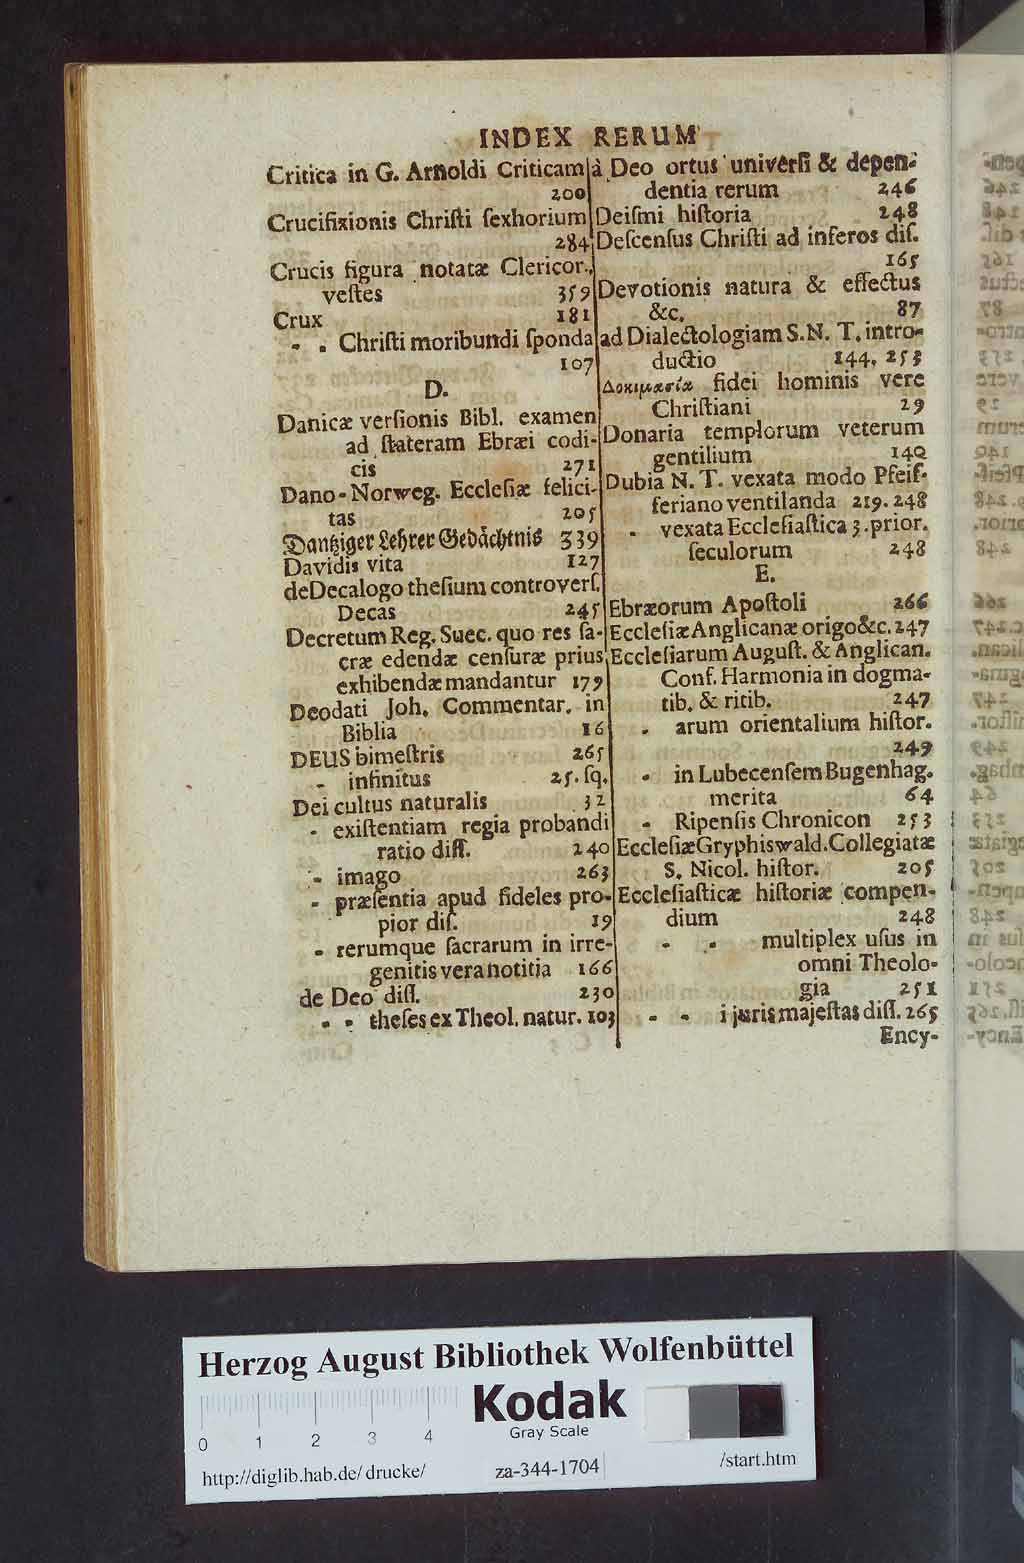 INDEX RERUM
Critica in G. Arnoldi Criticam
200
Crucifixionis Chriſti ſexhorium
284
Crucis figura notatæ Clericor.
veſtes 359
Crux 181
- - Chriſti moribundi ſponda
107
D.
Danicæ verſionis Bibl. examen
ad ſtateram Ebræi codi-
cis 271
Dano-Norweg. Eccleſiæ felici-
tas 205
Dantziger Lehrer Gedächtnis 339
Davidis vita 127
de Decalogo theſium controverſ.
Decas 245
Decretum Reg. Suec. quo res ſa-
cræ edendæ cenſuræ prius
exhibendæ mandantur 179
Deodati Joh. Commentar. in
Biblia 16
DEUS bimeſtris 265
- infinitus 25. ſq.
Dei cultus naturalis 32
- exiſtentiam regia probandi
ratio diſſ. 240
- imago 263
- præſentia apud fideles pro-
pior diſ. 19
- rerumque ſacrarum in irre-
genitis vera notitia 166
de Deo diſſ. 230
- - theſes ex Theol. natur. 103
à Deo ortus univerſi & depen-
dentia rerum 246
Deiſmi hiſtoria 248
Deſcenſus Chriſti ad inferos diſ.
165
Devotionis natura & effectus
&c. 87
ad Dialectologiam S. N. T. intro-
ductio 144. 253
Δοκιμασία fidei hominis vere
Chriſtiani 29
Donaria templorum veterum
gentilium 140
Dubia N. T. vexata modo Pfeif-
feriano ventilanda 219. 248
- vexata Eccleſiaſtica 3. prior.
ſeculorum 248
E.
Ebræorum Apoſtoli 266
Eccleſiæ Anglicanæ origo &c. 247
Eccleſiarum Auguſt. & Anglican.
Conf. Harmonia in dogma-
tib. & ritib. 247
- arum orientalium hiſtor.
249
- in Lubecenſem Bugenhag.
merita 64
- Ripenſis Chronicon 253
Eccleſiæ Gryphiswald. Collegiatæ
S. Nicol. hiſtor. 205
Eccleſiaſticæ hiſtoriæ compen-
dium 248
- - multiplex uſus in
omni Theolo-
gia 251
- - i juris majeſtas diſſ. 265
Ency-
Herzog August Bibliothek Wolfenbüttel
Kodak
Gray Scale
0 1 2 3 4
http://diglib.hab.de/drucke/ za-344-1704 /start.htm